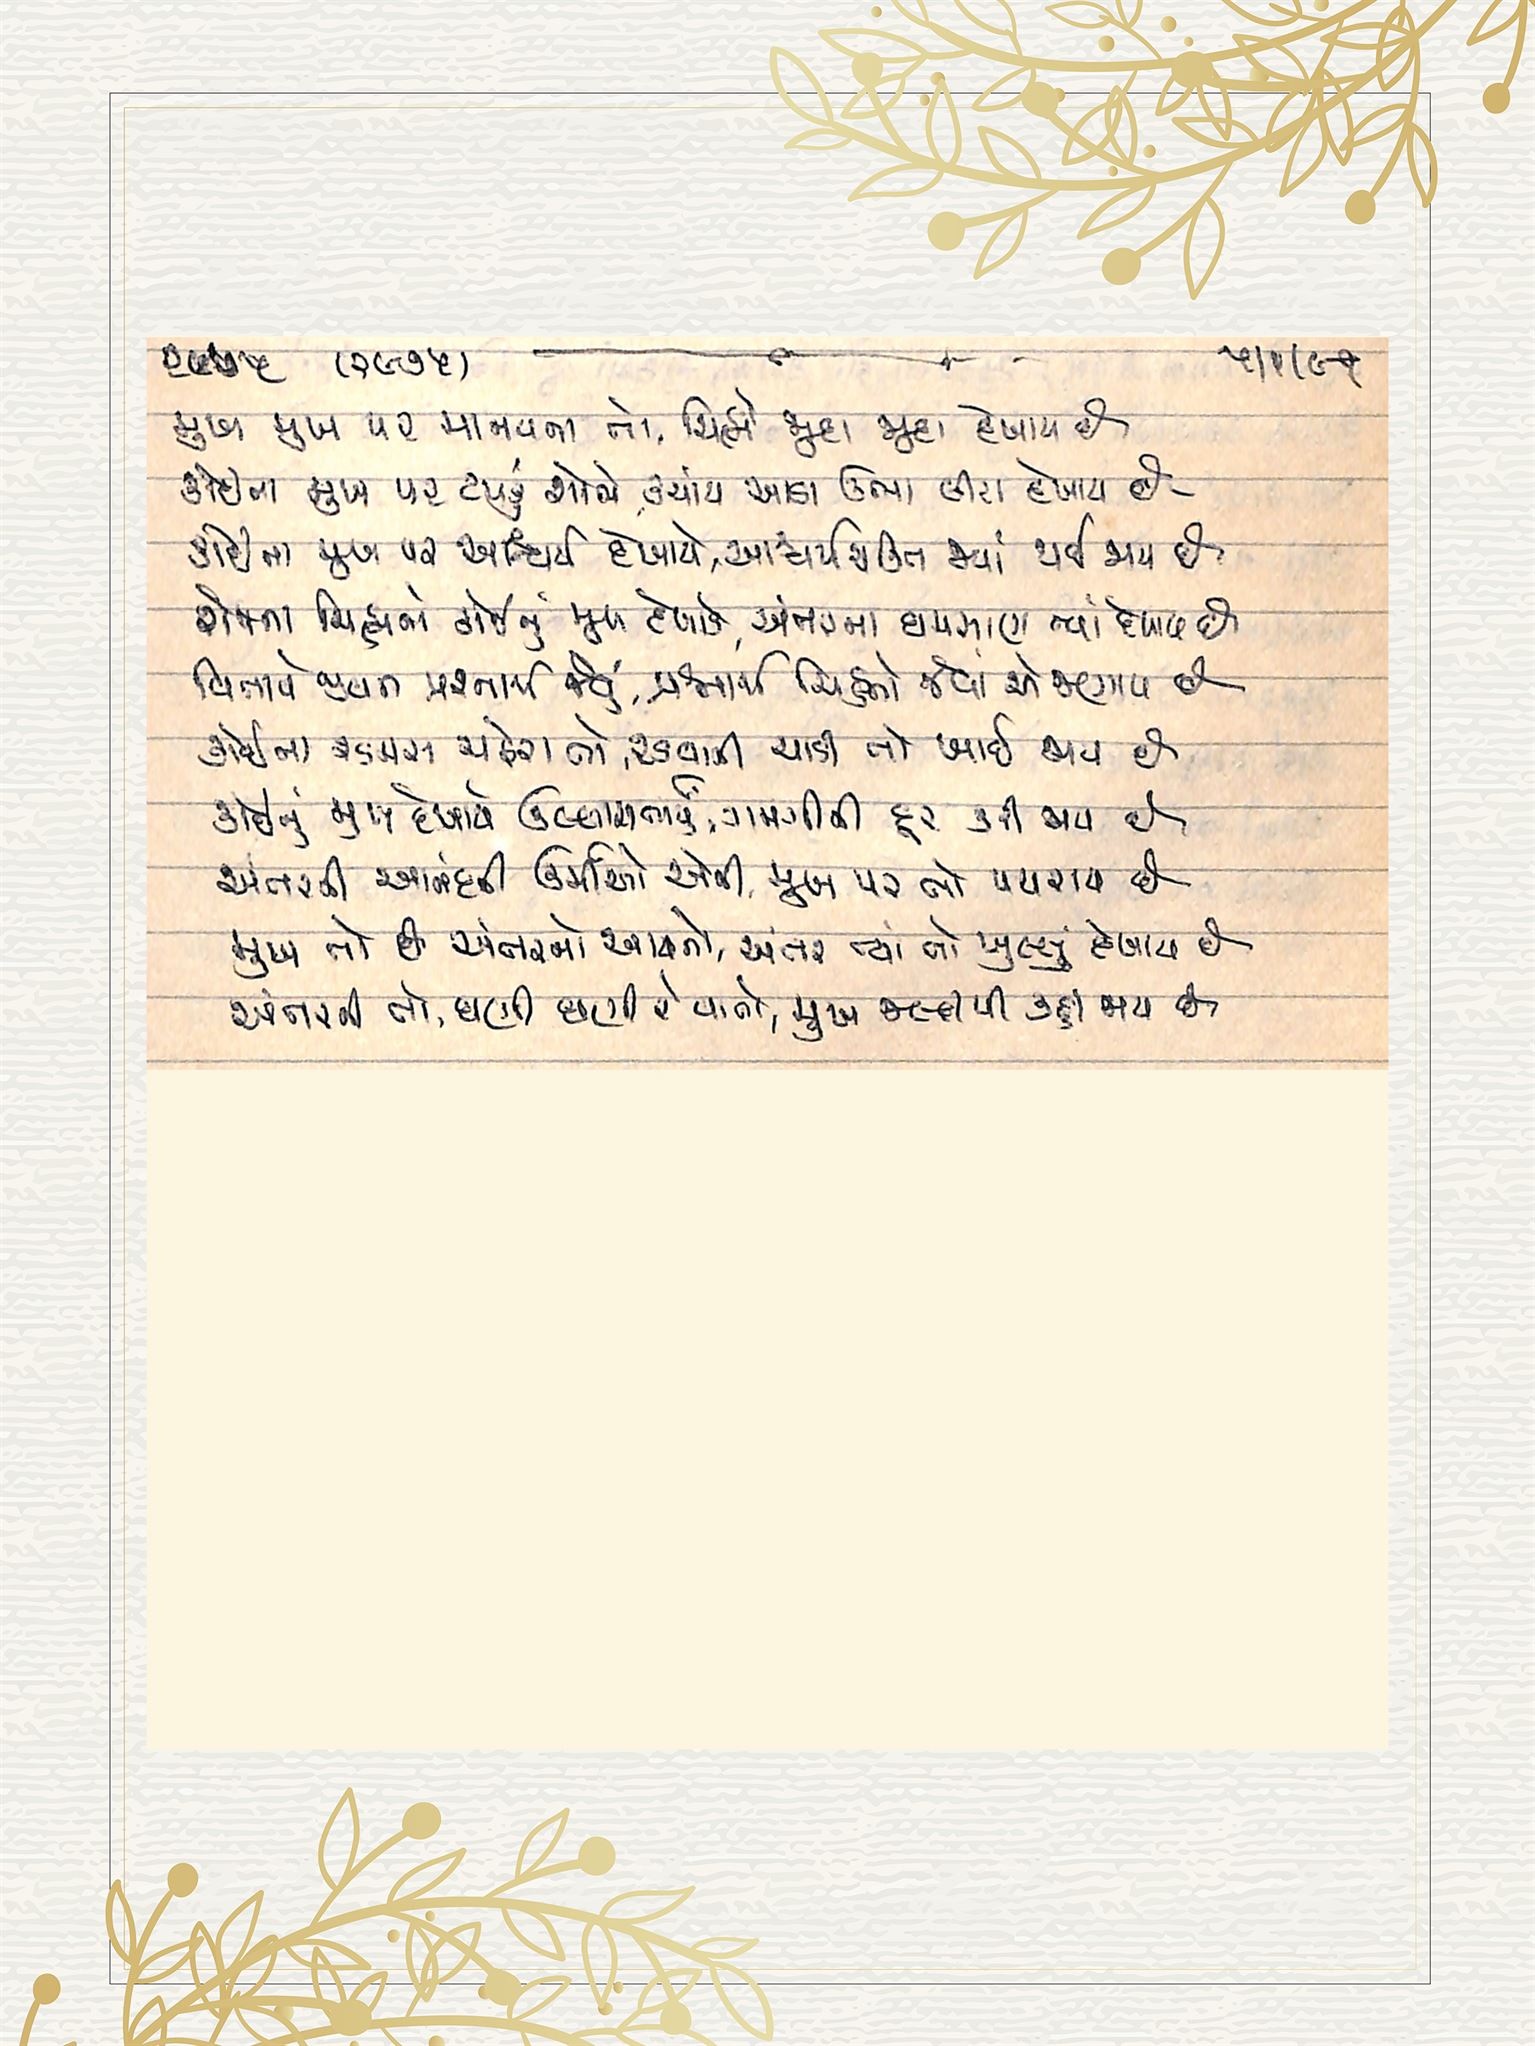 (૨૯૭૫) ૫/૧/૯૧
મુખ મુખ પર માનવના તો, ચિહ્નો જુદા જુદા દેખાય છે
કોઈના મુખ પર ટપકું શોભે, ક્યાંય આડા ઉભા લીટા દેખાય છે
કોઈના મુખ પર આશ્ચર્ય દેખાયે, આશ્ચર્યચકિત જ્યાં થઈ જાય છે
ચિહ્નને કોઈનું મુખ દેખાડે, અંતરના ઘમસાણ ત્યાં દેખાય છે
વિતાવે જીવન પ્રશ્નાર્થ જેવું, પ્રશ્નાર્થ ચિહ્નો જેવાં એ જણાય છે
કોઈના ચહેરા તો, રડવાની ચાડી તો ખાઈ જાય છે
કોઈનું મુખ દેખાયે ઉલ્લાસભર્યું, ગમગીની દૂર કરી જાય છે
અંતરની આનંદની ઉર્મિઓ એની, મુખ પર તો પથરાય છે
મુખ તો છે અંતરનો આયનો, અંતર ત્યાં તો ખુલ્લું દેખાય છે
અંતરની તો, ઘણી ઘણી રે વાતો, મુખ જલ્દીથી કહી જાય છે